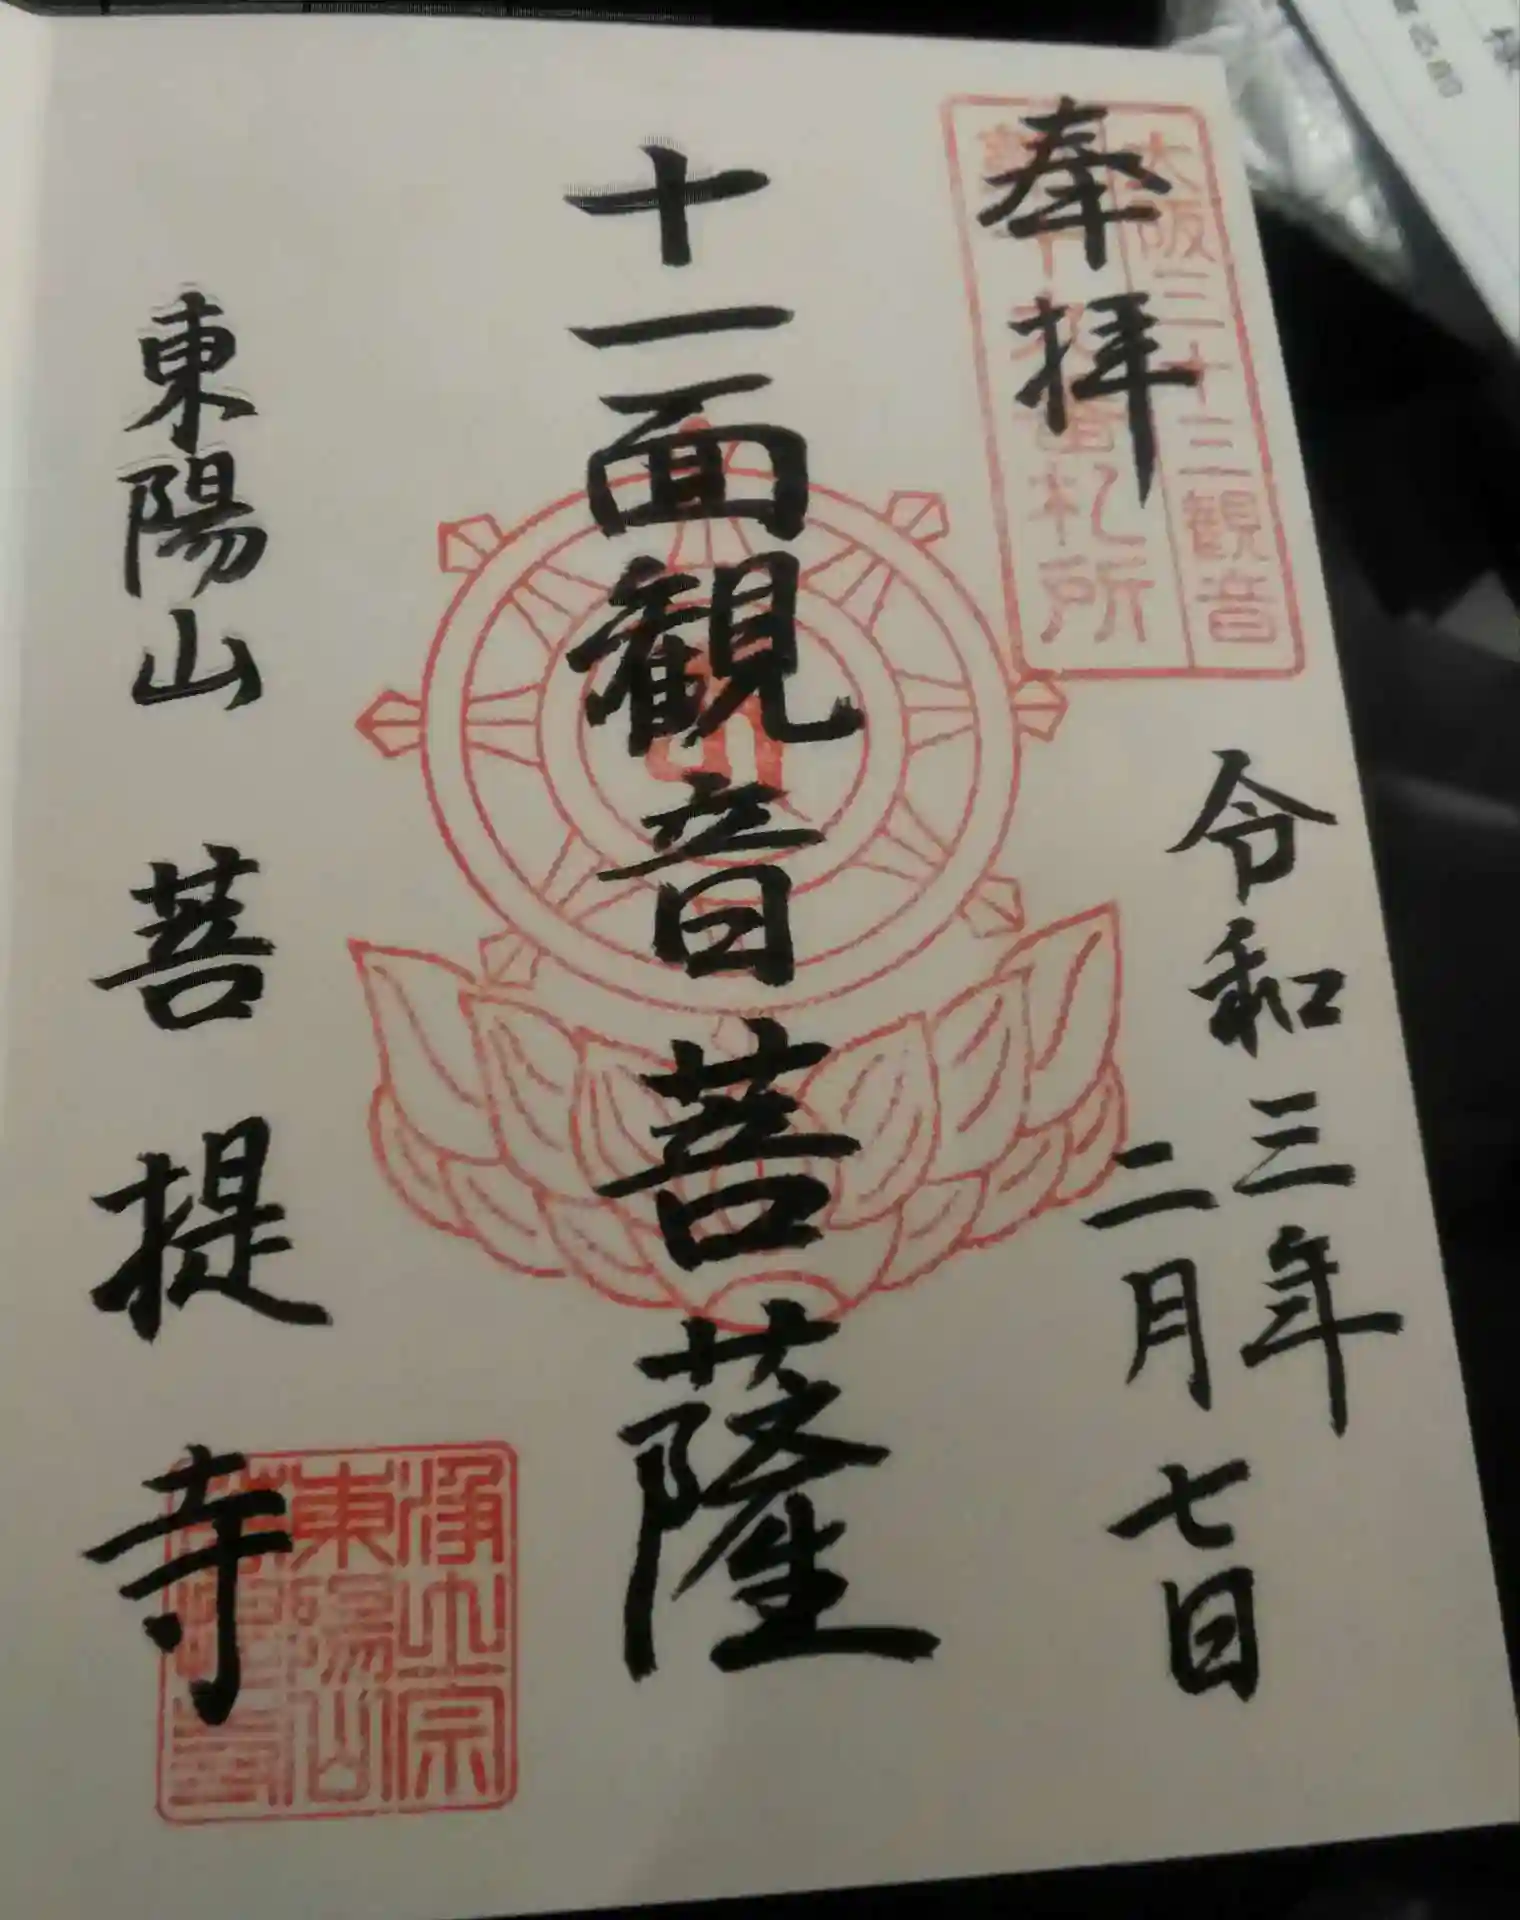 奉拝
大阪三十三観音
札所
令和三年
二月七日
十一面観音菩薩
東陽山 菩提寺
浄土宗
東陽山